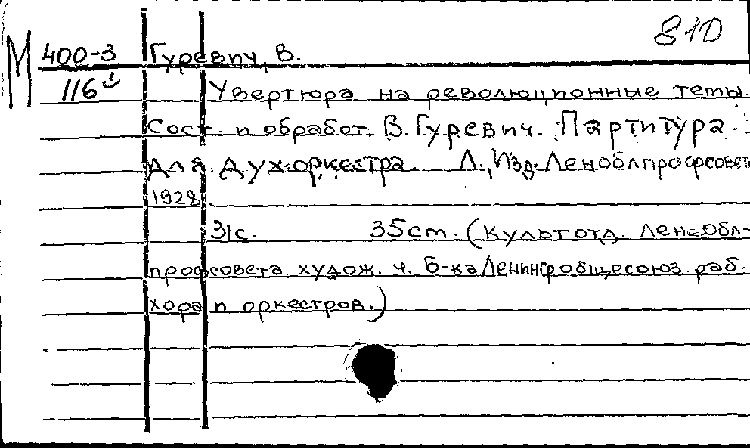 810
М 400-3 Гуревич, В.
116 Увертюра на революционные темы.
Сост. и обработ. В. Гуревич. Партитура
для дух. оркестра. Л., Изд. Леноблпрофсовета
1928.
31с. 35см. (Культотд. Леноблпрофсовета
худож. ч. Б-ка Ленингр общесоюз раб.
хора и оркестров.)